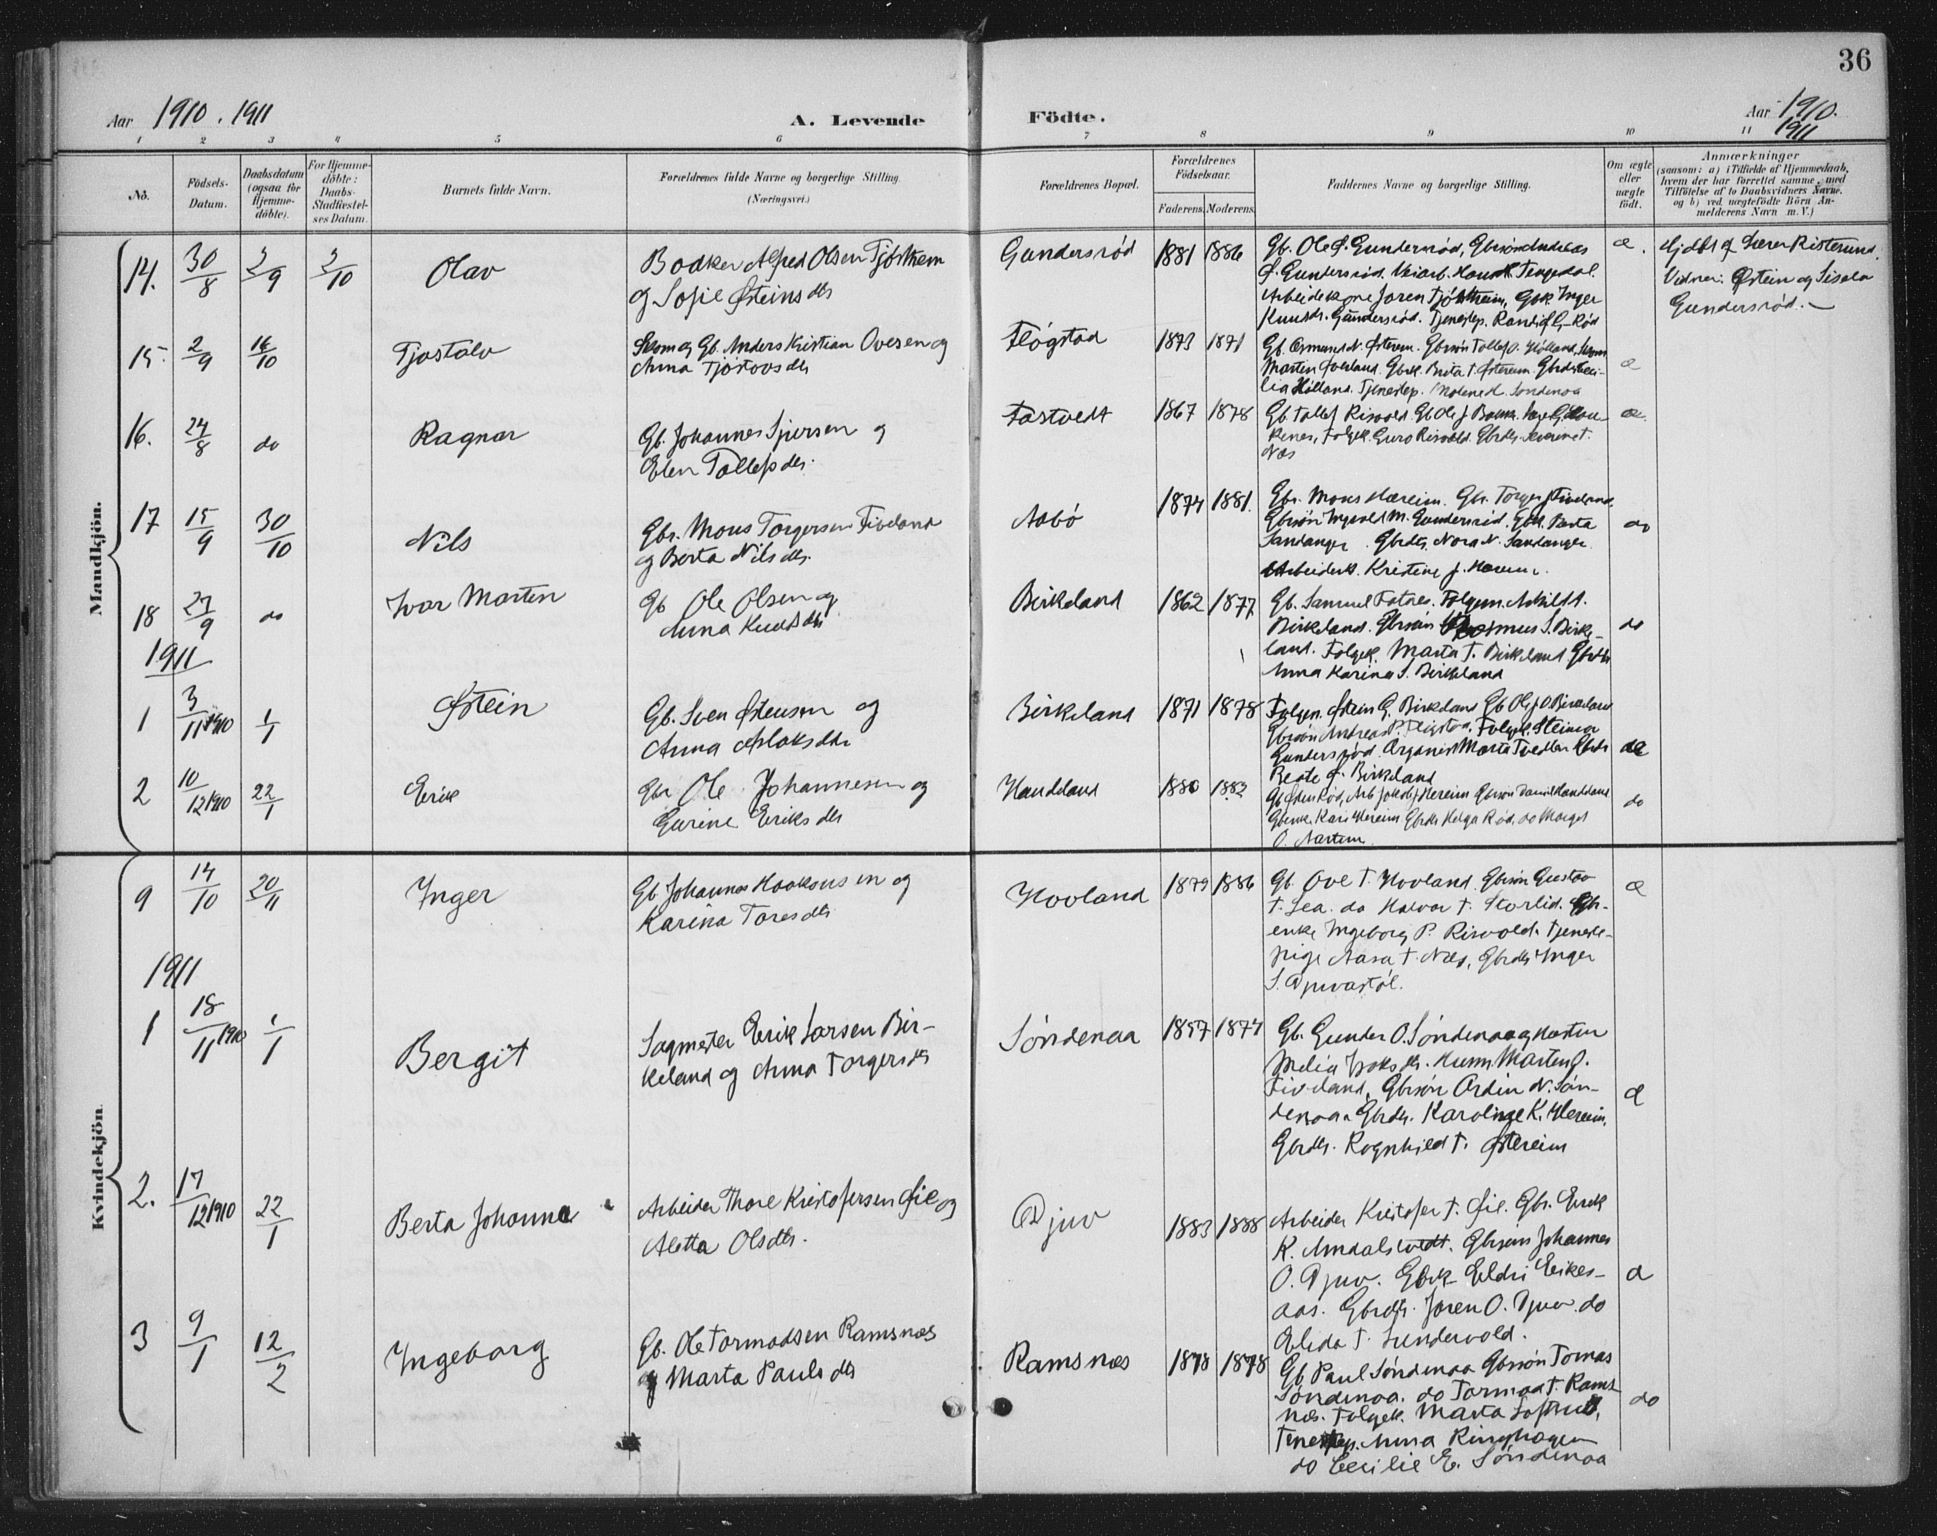 36
Aar 1910. 1911
A. Levende Födte.
Aar 1910.
1911
1 2 3 4 5 6 7 8 9 10 11
No.
Födsels-
Datum.
Daabsdatum
(ogsaa for
Hjemme-
döbte).
For Hjemme-
döbte:
Daabs-
Stadfæstel-
ses Datum.
Barnets fulde Navn.
Forældrenes fulde Navne og borgerlige Stilling.
(Næringsvei.)
Forældrenes Bopæl.
Forældrenes
Födselsaar.
Faderens. Moderens.
Faddernes Navne og borgerlige Stilling.
Om ægte
eller
uægte
födt.
Anmærkninger
(saasom: a) i Tilfælde af Hjemmedaab,
hvem der har forrettet samme, med
Tilföielse af to Daabsvidners Navne.
og b) ved uægtefödte Börn An-
melderens Navn m. V.)
Mandkjön.
14. 30/8 3/9 3/10 Olav
Bødker Alfred Olsen Tjöstheim
og Sofie Østeinsdtr
Gundersröd 1881 1886
Gb. Ole Ø. Gundersröd, Gbrsön Andreas
Ø. Gundersröd. Veiarb. Hans K. Tengesdal.
Arbeiderkone Joren Tjöstheim, Gbk. Inger
Knutsdr. Gundersröd. Tjenestep. Randi G. Röd
æ.
Hjdbt af Lærer Risterund.
Vidner: Østein og Sissela
Gundersröd.
15. 2/9 16/10 Tjostolv
Skom og Gb. Anders Kristian Ovesen og
Anna Tjostovsdtr
Flögstad 1873 1871
Gb. Osmund N. Østerem. Gbrsön Tollef O. Hölland,
Martin Øverland. Gbrk. Berta T. Østerem. Gbrdtr Ceci-
lia Hölland. Tjenestep. Malene K. Söndenaa
æ
16. 24/8 do Ragnar
Gb. Johannes Sjursen og
Elen Tollefsdtr.
Fastvedt 1867 1878
Gb Tollef Risvold. Gb Ole J
kenes, Folgek. Guro Risvold. Gbrdtr. Severine T.
Næs
æ
17 15/9 30/10 Nils
Gbr. Mons Torgersen Fiveland
og Berta Nilsdtr.
Aabö 1874 1881.
Gbr. Mons Hæreim. Gbr. Torger J Fiveland.
Gbrsön Ingvald M. Gundersröd. Gbk. Berta
Sandanger. Gbrdtr. Nora N. Sandanger.
Arbeiderk. Kristine J. Hæreim.
do
18 27/9 do Ivar Marten
Gb Ole Olsen og
Anna Knudsdtr
Birkeland 1862 1877
Gb. Samuel Fatnes. Folgem. Askild A.
Birkeland. Gbrsön Rasmus S. Birke-
land. Folgek. Marta T. Birkeland Gbrdtr
Anna Karina S. Birkeland
do
1911
1 3/11 1910 1/1 Østein
Gb. Sven Østensen og
Anna Aslaksdtr
Birkeland 1871 1878
Folgem. Østein G. Birkeland Gb Ole J O Birkeland
Gbrsön Andreas P. Flögstad. Folgek. Steinvor
Gundersröd. Organist Marta Tvedten Gbrdtr
Beate Ø. Birkeland
do
2 10/12 1910 22/1 Erik
Gbr Ole Johannesen og
Gurine Eriksdtr
Handeland 1880 1882
Gb Østen Röd, Arb Jakob J Hereim Gbrsön Daniel Handeland
Gbenke. Kari Hereim Gbrdtr Helga Röd. do Marget
O. Nærtum
do
Kvindekjön.
9 14/10 20/11 Inger
Gb. Johannes Haaksonsen og
Karina Taresdtr
Hovland 1879 1886
Gb. Ove T. Hovland. Gbrsön Gustav
T. Lea. do Halvor T. Storlid. Gbr-
enke Ingeborg P. Risvold. Tjeneste-
pige Aasa T. Næs, Gbrdtr Inger
S. Djuvastöl.
æ
1911
1 18/11 1910 1/1 Bergit
Sagmester Erik Larsen Bir-
keland og Anna Torgersdtr
Söndenaa 1857 1874
Gb. Gunder O. Söndenaa og Hustru
Melia Isaksdtr. Husm. Marten O.
Fiveland, Gbrsön Ordin N. Sön-
denaa. Gbrdtr. Karoline K. Hereim,
Gbrdtr. Ragnhild T. Østereim
æ
2. 17/12 1910 22/1 Berta Johanna
Arbeider Thore Kristofersen Øie og
Aletta Olsdtr.
Djuv 1883 1888
Arbeider Kristofer T. Øie. Gbr. Erik
K. Amdalstvedt. Gbrsön Johannes
O. Djuv. Gbrk Eldri Eikes-
aas. Gbrdtr. Joren O. Djuv. do
Elida T. Sundervold.
æ
3 9/1 12/2 Ingeborg
Gb. Ole Tormodsen Ramsnæs
og Marta Paulsdtr
Ramsnæs 1878 1878
Gb Paul Söndenaa Gbrsön Tomas
Söndenaa. do Tormod T. Rams-
næs. Folgek. Marta Softrud,
Tenestep. Anna Ringhagen
do Cecilie E. Söndenaa
do